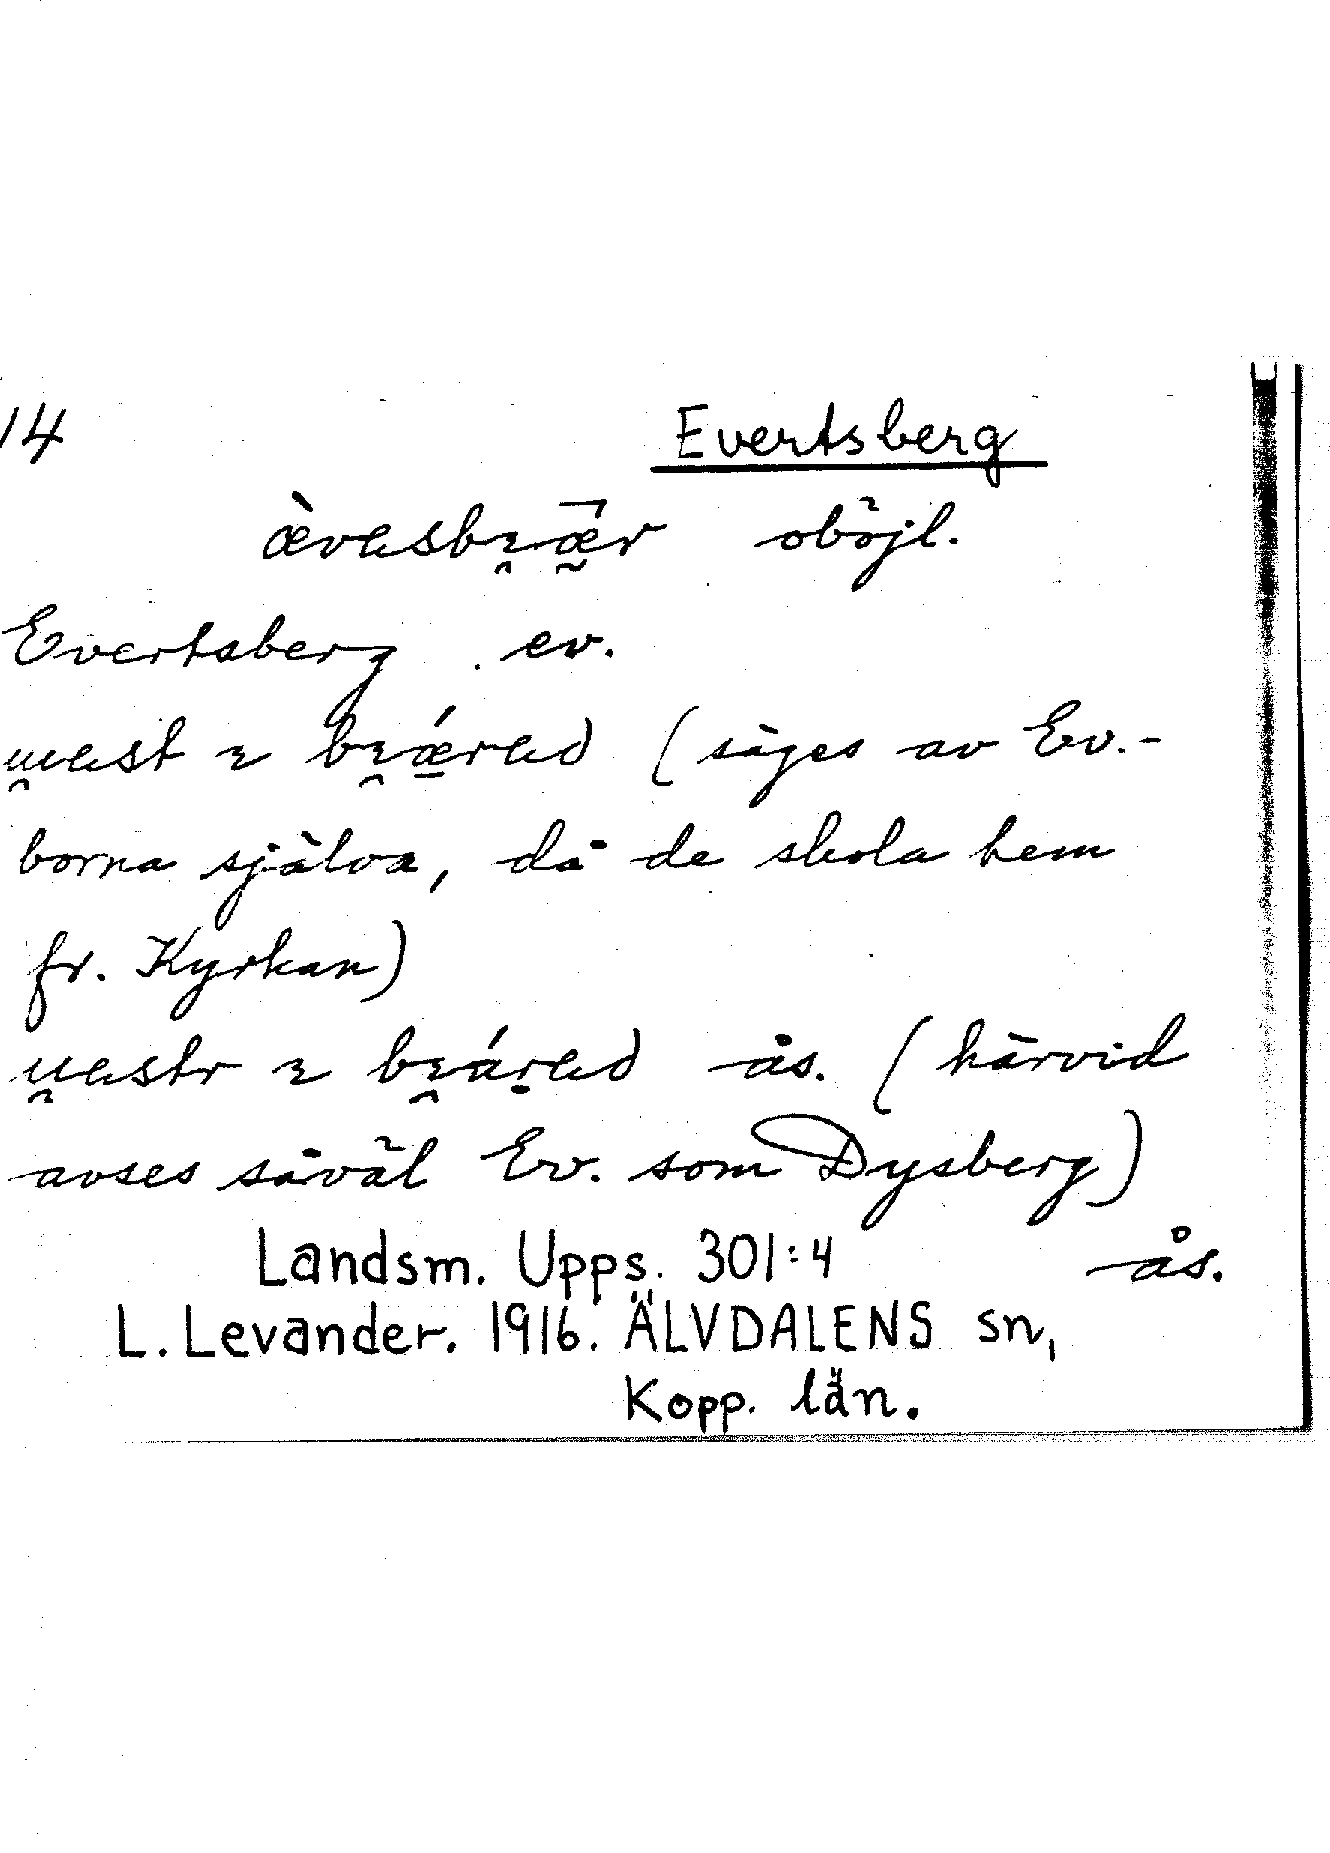 14
Evertsberg
oböjl.
Evertsberg ev.
(säges av Ev.-
borna själva, då de skola hem
fr. Kyrkan)
ås. (härvid
avses såväl Ev. som Dysberg)
Landsm. Upps. 301:4 ås.
L. Levander. 1916. ÄLVDALENS sn,
Kopp. län.